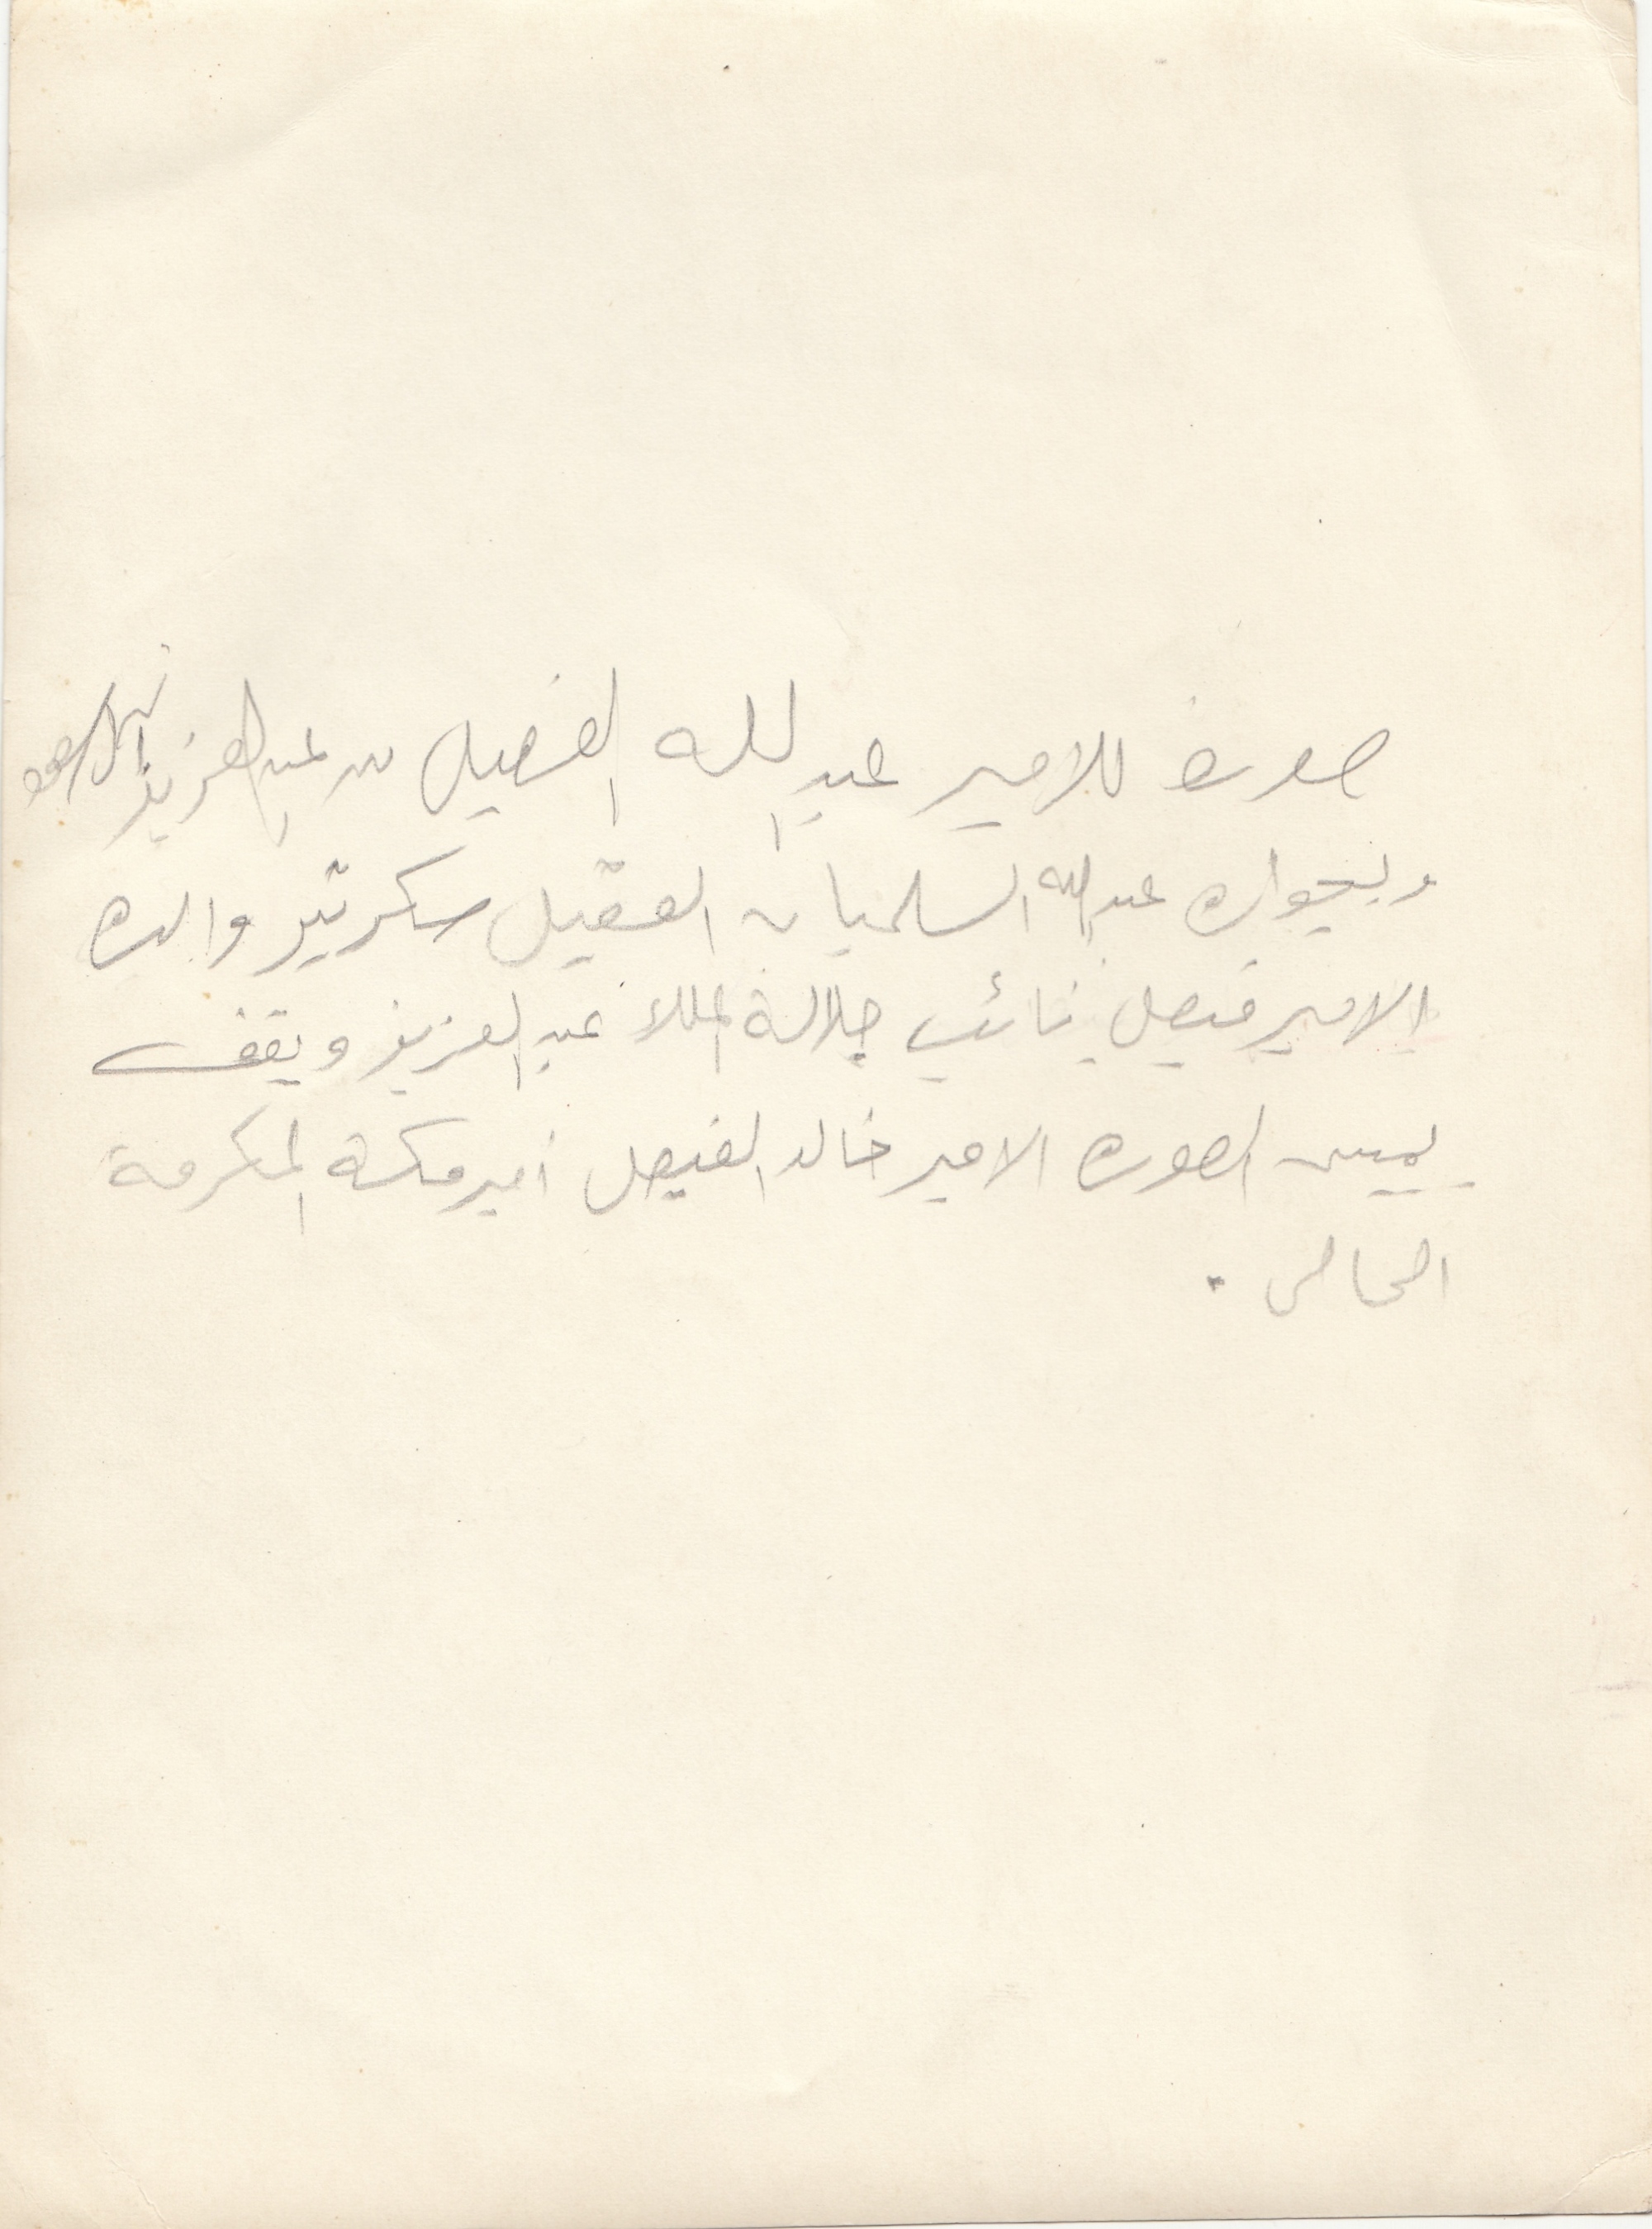 صورة للامير عبدالله الفيصل بن عبدالعزيز آل سعود
وبجواره عبدالله السليمان العقيل سكرتير والده
الامير فيصل نائب جلالة الملك عبدالعزيز ويقف
يمين الصوره الامير خالد الفيصل أمير مكة المكرمة
الحالي .